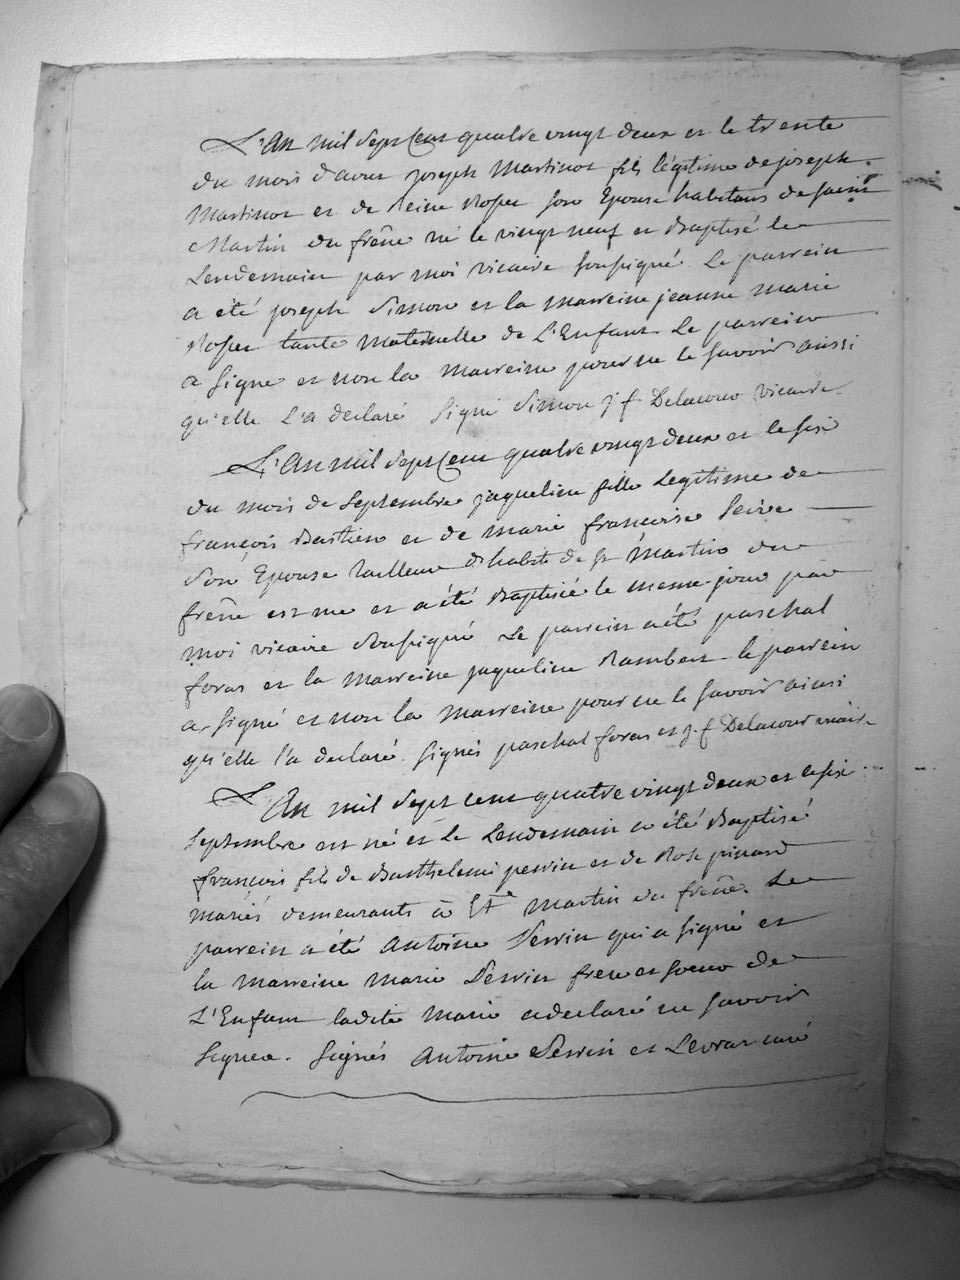 L'An mil sept Cent quatre vingt deux et le trente
du mois d'aout joseph Martinot fils légitime de joseph
Martinot et de Reine Roser son Epouse habitans de saint
Martin du frêne né le vingt neuf et Baptisé le
Lendemain par moi vicaire soussigné. Le parrein
a été joseph Simon et la marreine jeanne marie
Roser tante maternelle de L'Enfant. Le parrein
a signe et non la marreine pour ne le savoir aussi
qu'elle L'a declaré Signé Simon j f Delacour vicaire
L'An mil sept Cent quatre vingt deux et le six
du mois de septembre jaqueline fille Legitime de
françois Bastien et de marie françoise
Son Epouse tailleur d'habits de st Martin du
frêne est née et a été Baptisée le meme jour par
moi vicaire soussigné Le parrein a été paschal
foras et la marreine jaqueline Rambert le parrein
a signé et non la marreine pour ne le savoir ainsi
qu'elle l'a declaré. signés paschal foras et j. f Delacour vicaire
L'An mil sept cent quatre vingt deux et le six
septembre est né et Le Lendemain a été Baptisé
françois fils de Barthelemi perrin et de Rose pinard
mariés demeurants à St martin du frêne. Le
parrein a été Antoine Perrin qui a signé et
la marreine marie Perrin frere et soeur de
L'Enfant ladite Marie a declaré ne savoir
signer. Signés Antoine Perrin et Levrat curé